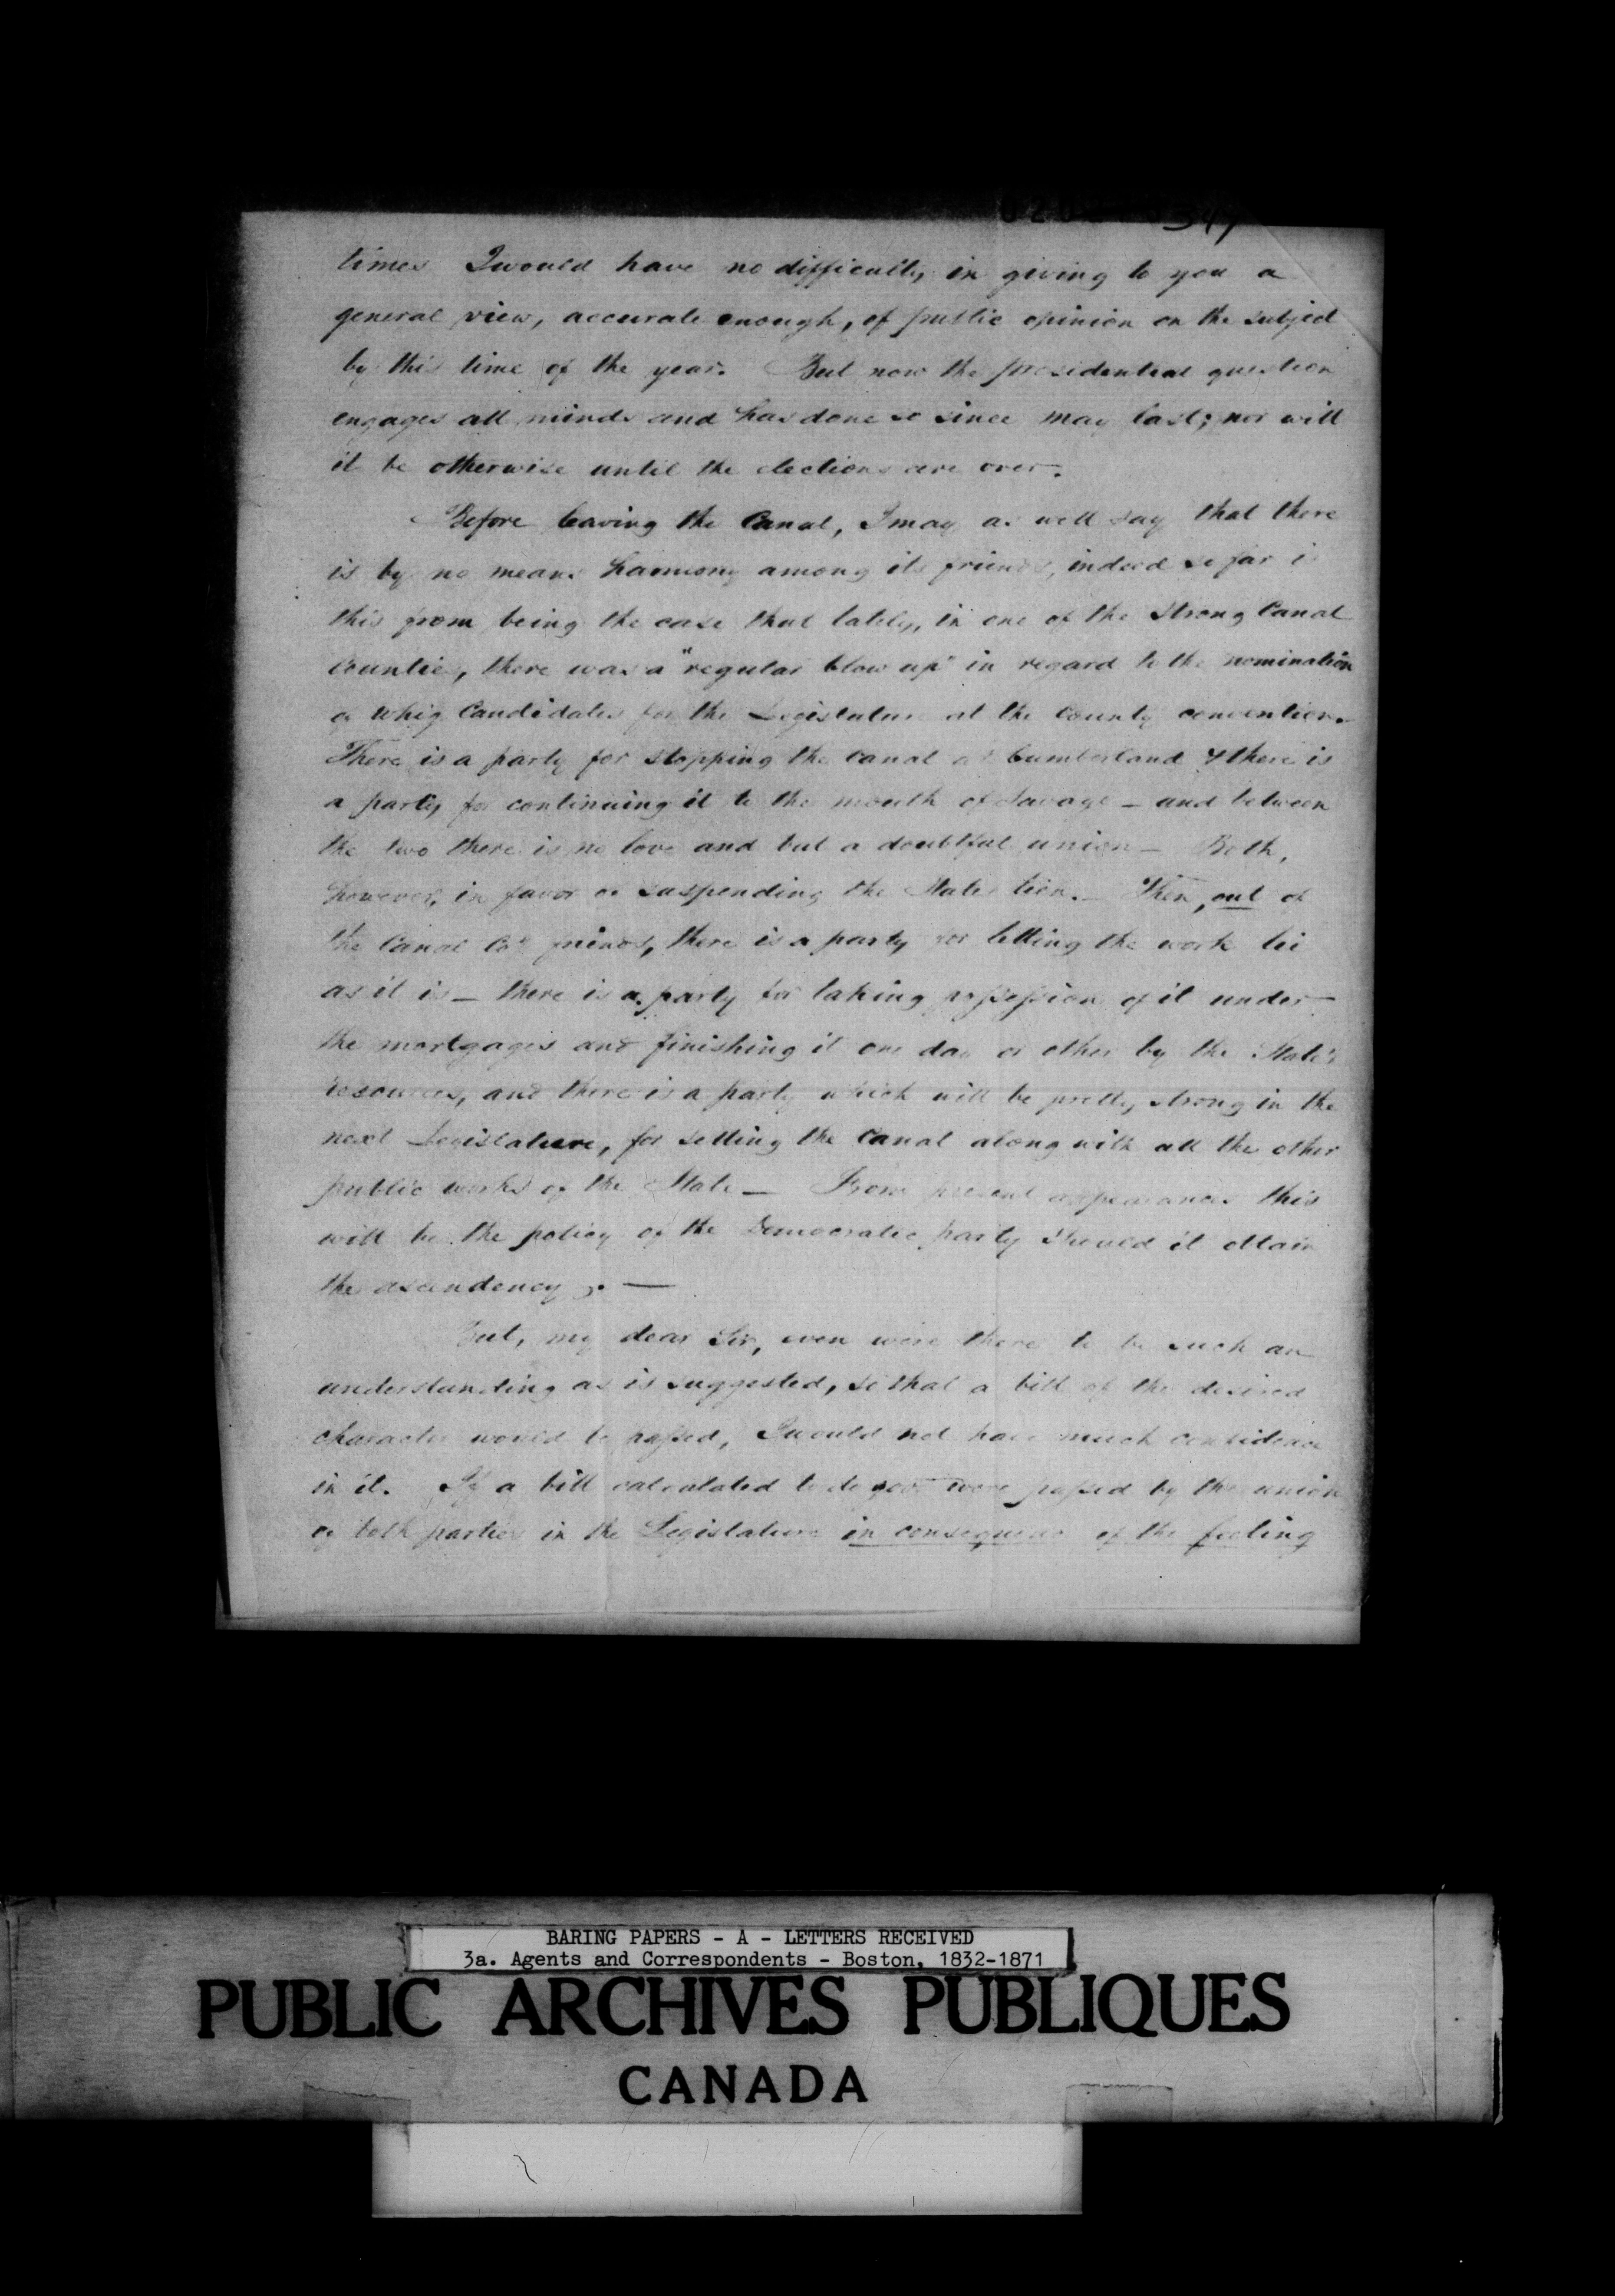 times I would have no difficulty in giving to you a
general view, accurate enough, of public opinion on the subject
by this time of the year. But now the presidential question
engages all minds and has done so since may last; nor will
it be otherwise until the elections are over.
Before leaving the Canal, I may as well say that there
is by no means harmony among its friends, indeed so far is
this from being the case that lately, in one of the strong Canal
Counties, there was a "regular blow up" in regard to the nomination
of Whig Candidates for the Legislature at the County convention.
There is a party for stopping the Canal at Cumberland & there is
a party for continuing it to the mouth of Savage — and between
the two there is no love and but a doubtful union — Both,
however, in favor of suspending the State's lien. — Then, out of
the Canal Co's friends, there is a party for letting the work lie
as it is — there is a party for taking possession of it under
the mortgages and finishing it one day or other by the State's
resources, and there is a party which will be pretty strong in the
next Legislature, for selling the Canal along with all the other
public works of the State — From present appearances this
will be the policy of the Democratic party should it attain
the ascendency. —
But, my dear Sir, even were there to be such an
understanding as is suggested, so that a bill of the desired
character would be passed, I would not have much confidence
in it. If a bill calculated to do good were passed by the union
of both parties in the Legislature in consequence of the feeling
BARING PAPERS - A - LETTERS RECEIVED
3a. Agents and Correspondents - Boston, 1832-1871
PUBLIC ARCHIVES PUBLIQUES
CANADA